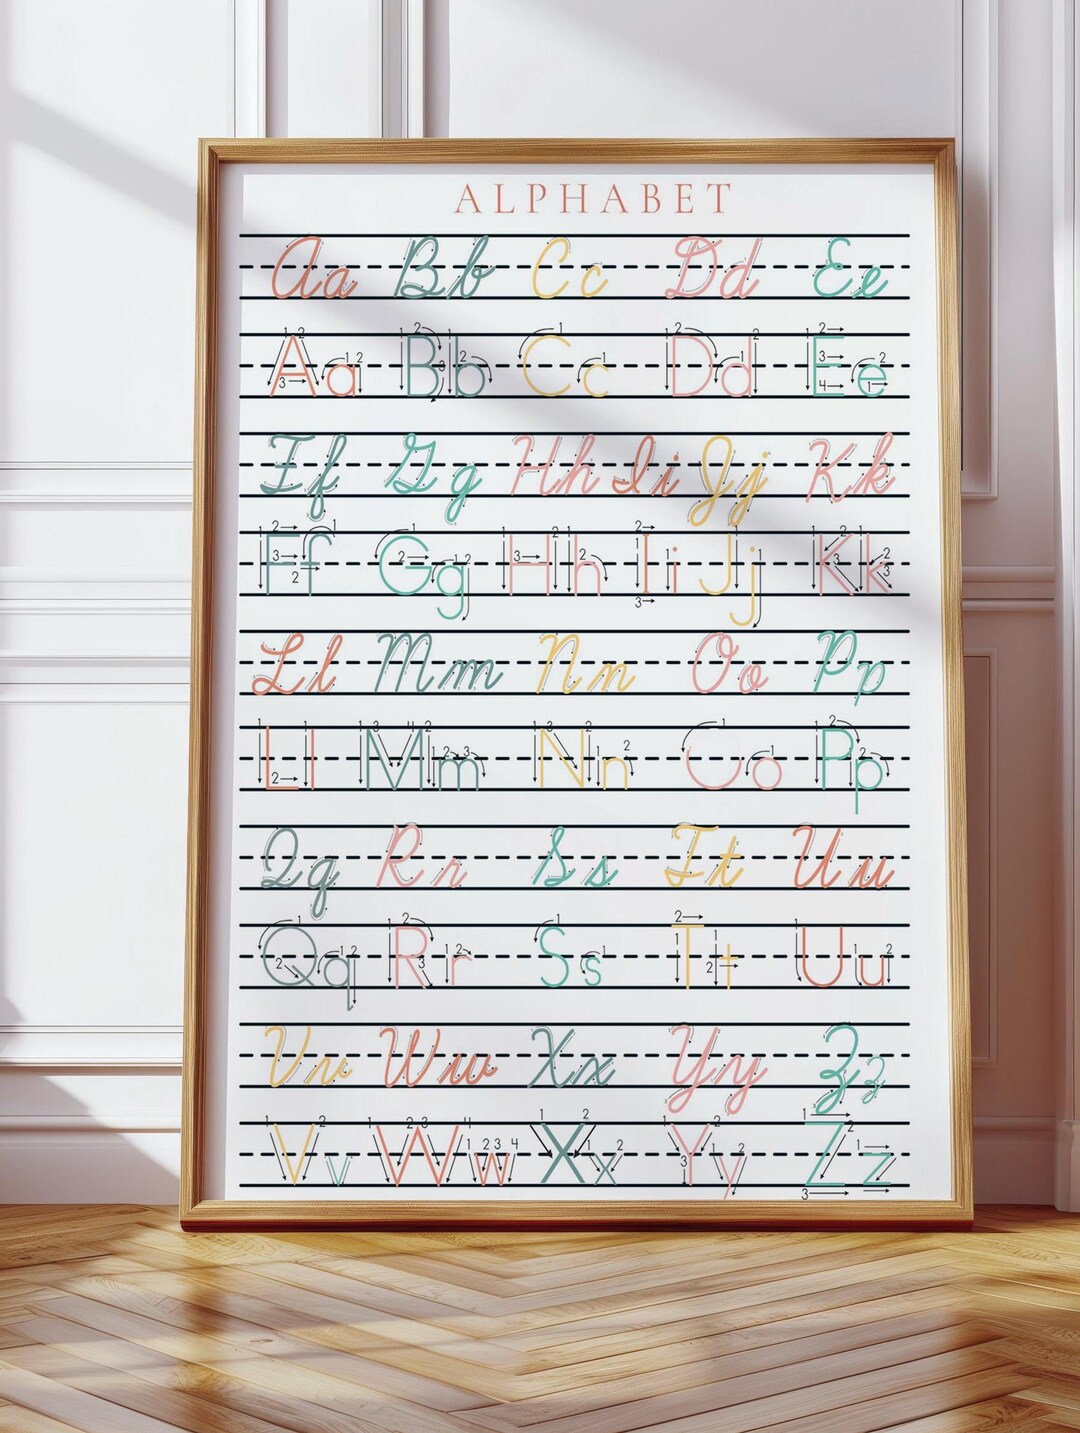 ALPHABET
Aa Bb Cc Dd Ee
Aa Bb Cc Dd Ee
Ff Gg Hh Ii Jj Kk
Ff Gg Hh Ii Jj Kk
Ll Mm Nn Oo Pp
Ll Mm Nn Oo Pp
Qq Rr Ss Tt Uu
Qq Rr Ss Tt Uu
Vv Ww Xx Yy Zz
Vv Ww Xx Yy Zz